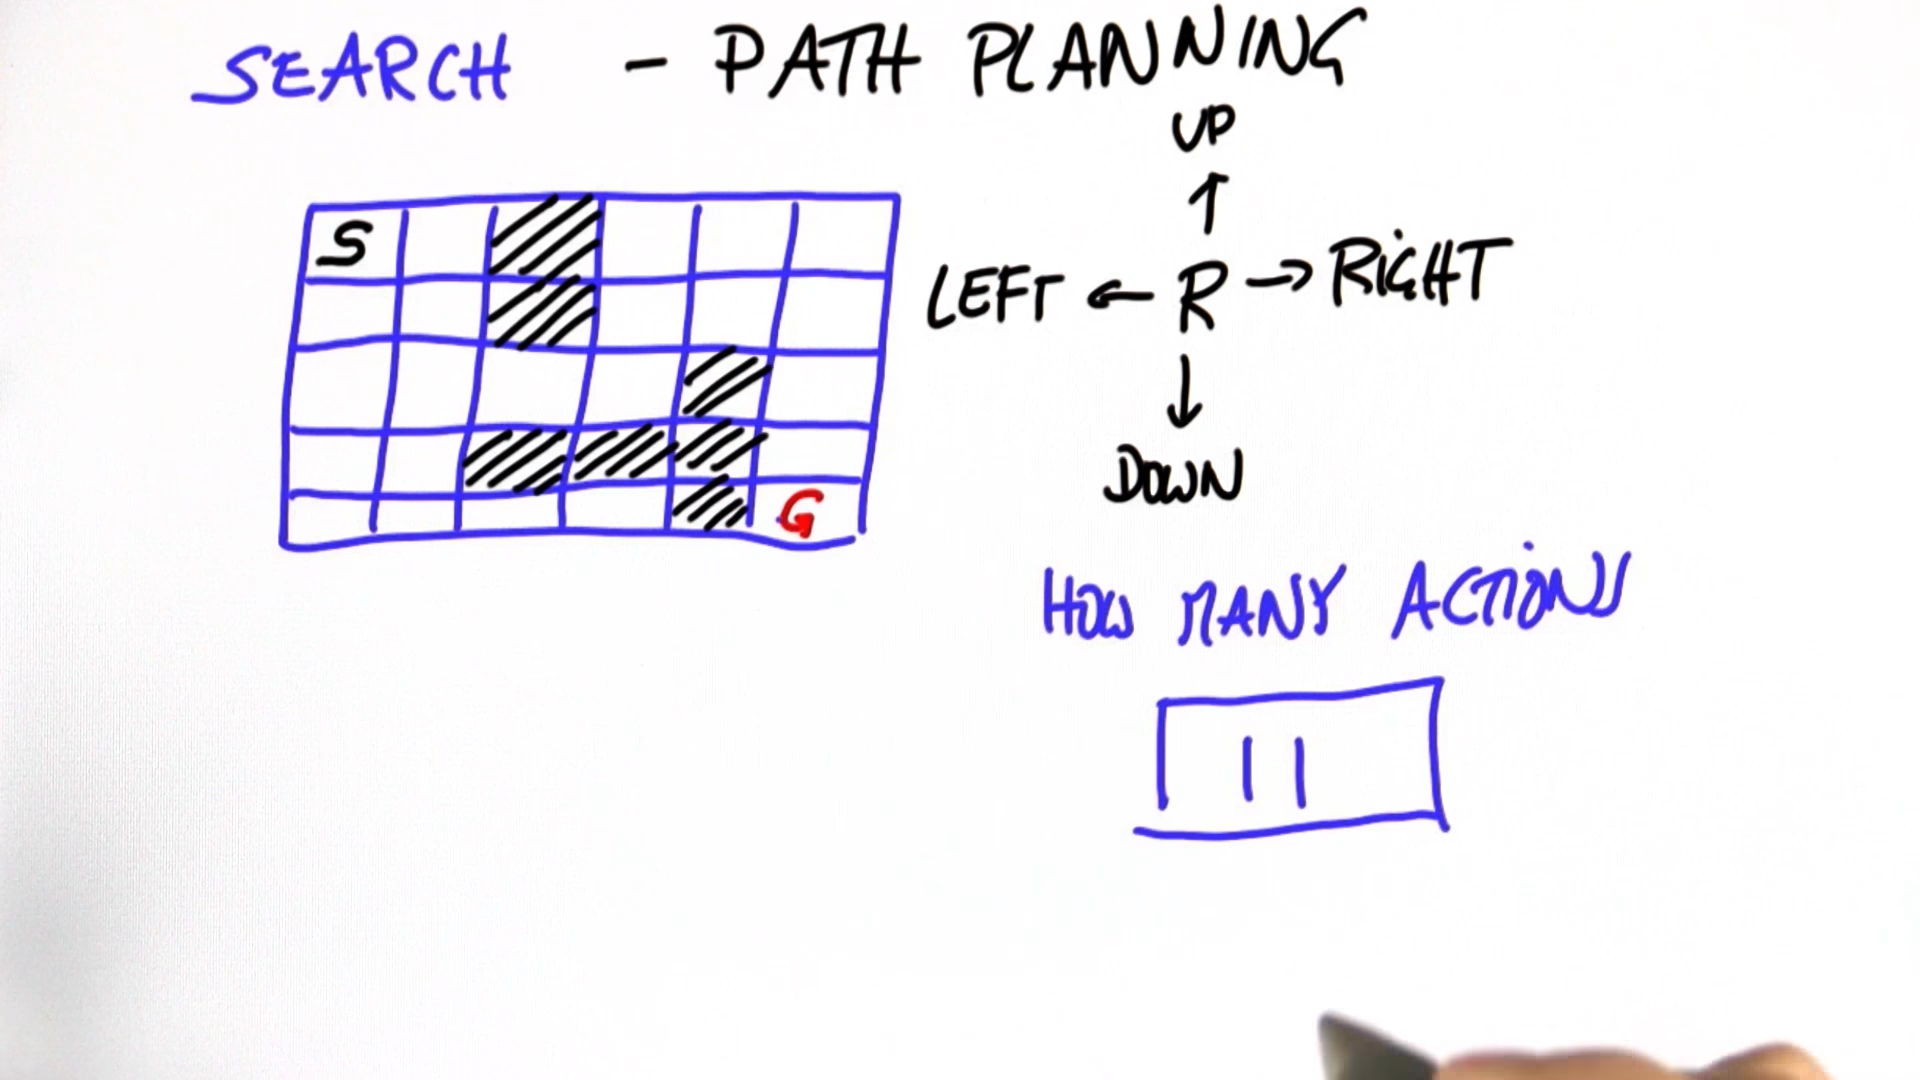 SEARCH - PATH PLANNING
UP
S
LEFT ← R → RIGHT
DOWN
G
HOW MANY ACTIONS
11